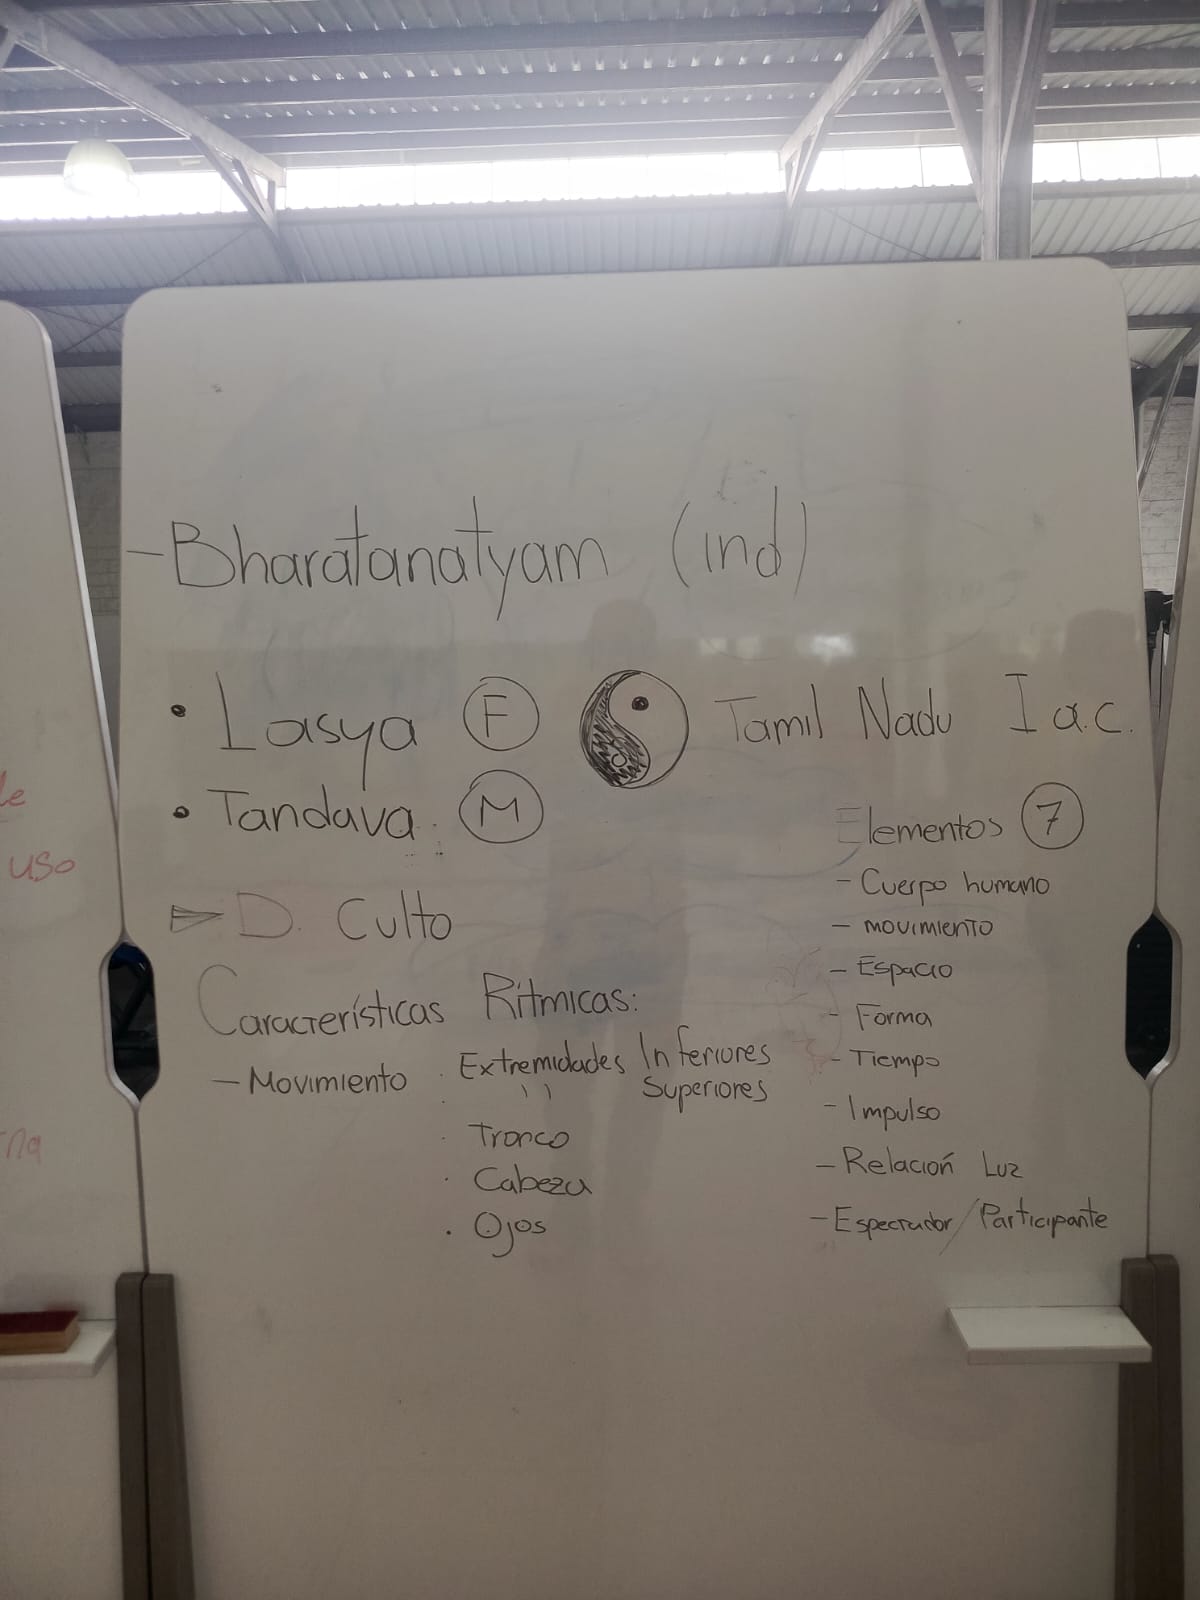 - Bharatanatyam (ind)
• Lasya F
Tamil Nadu I a.c.
• Tandava M
➢ D. Culto
Características Rítmicas:
- Movimiento . Extremidades Inferiores
. " Superiores
. Tronco
. Cabeza
. Ojos
Elementos 7
- Cuerpo humano
- Movimiento
- Espacio
- Forma
- Tiempo
- Impulso
- Relación Luz
- Espectador/Participante
uso